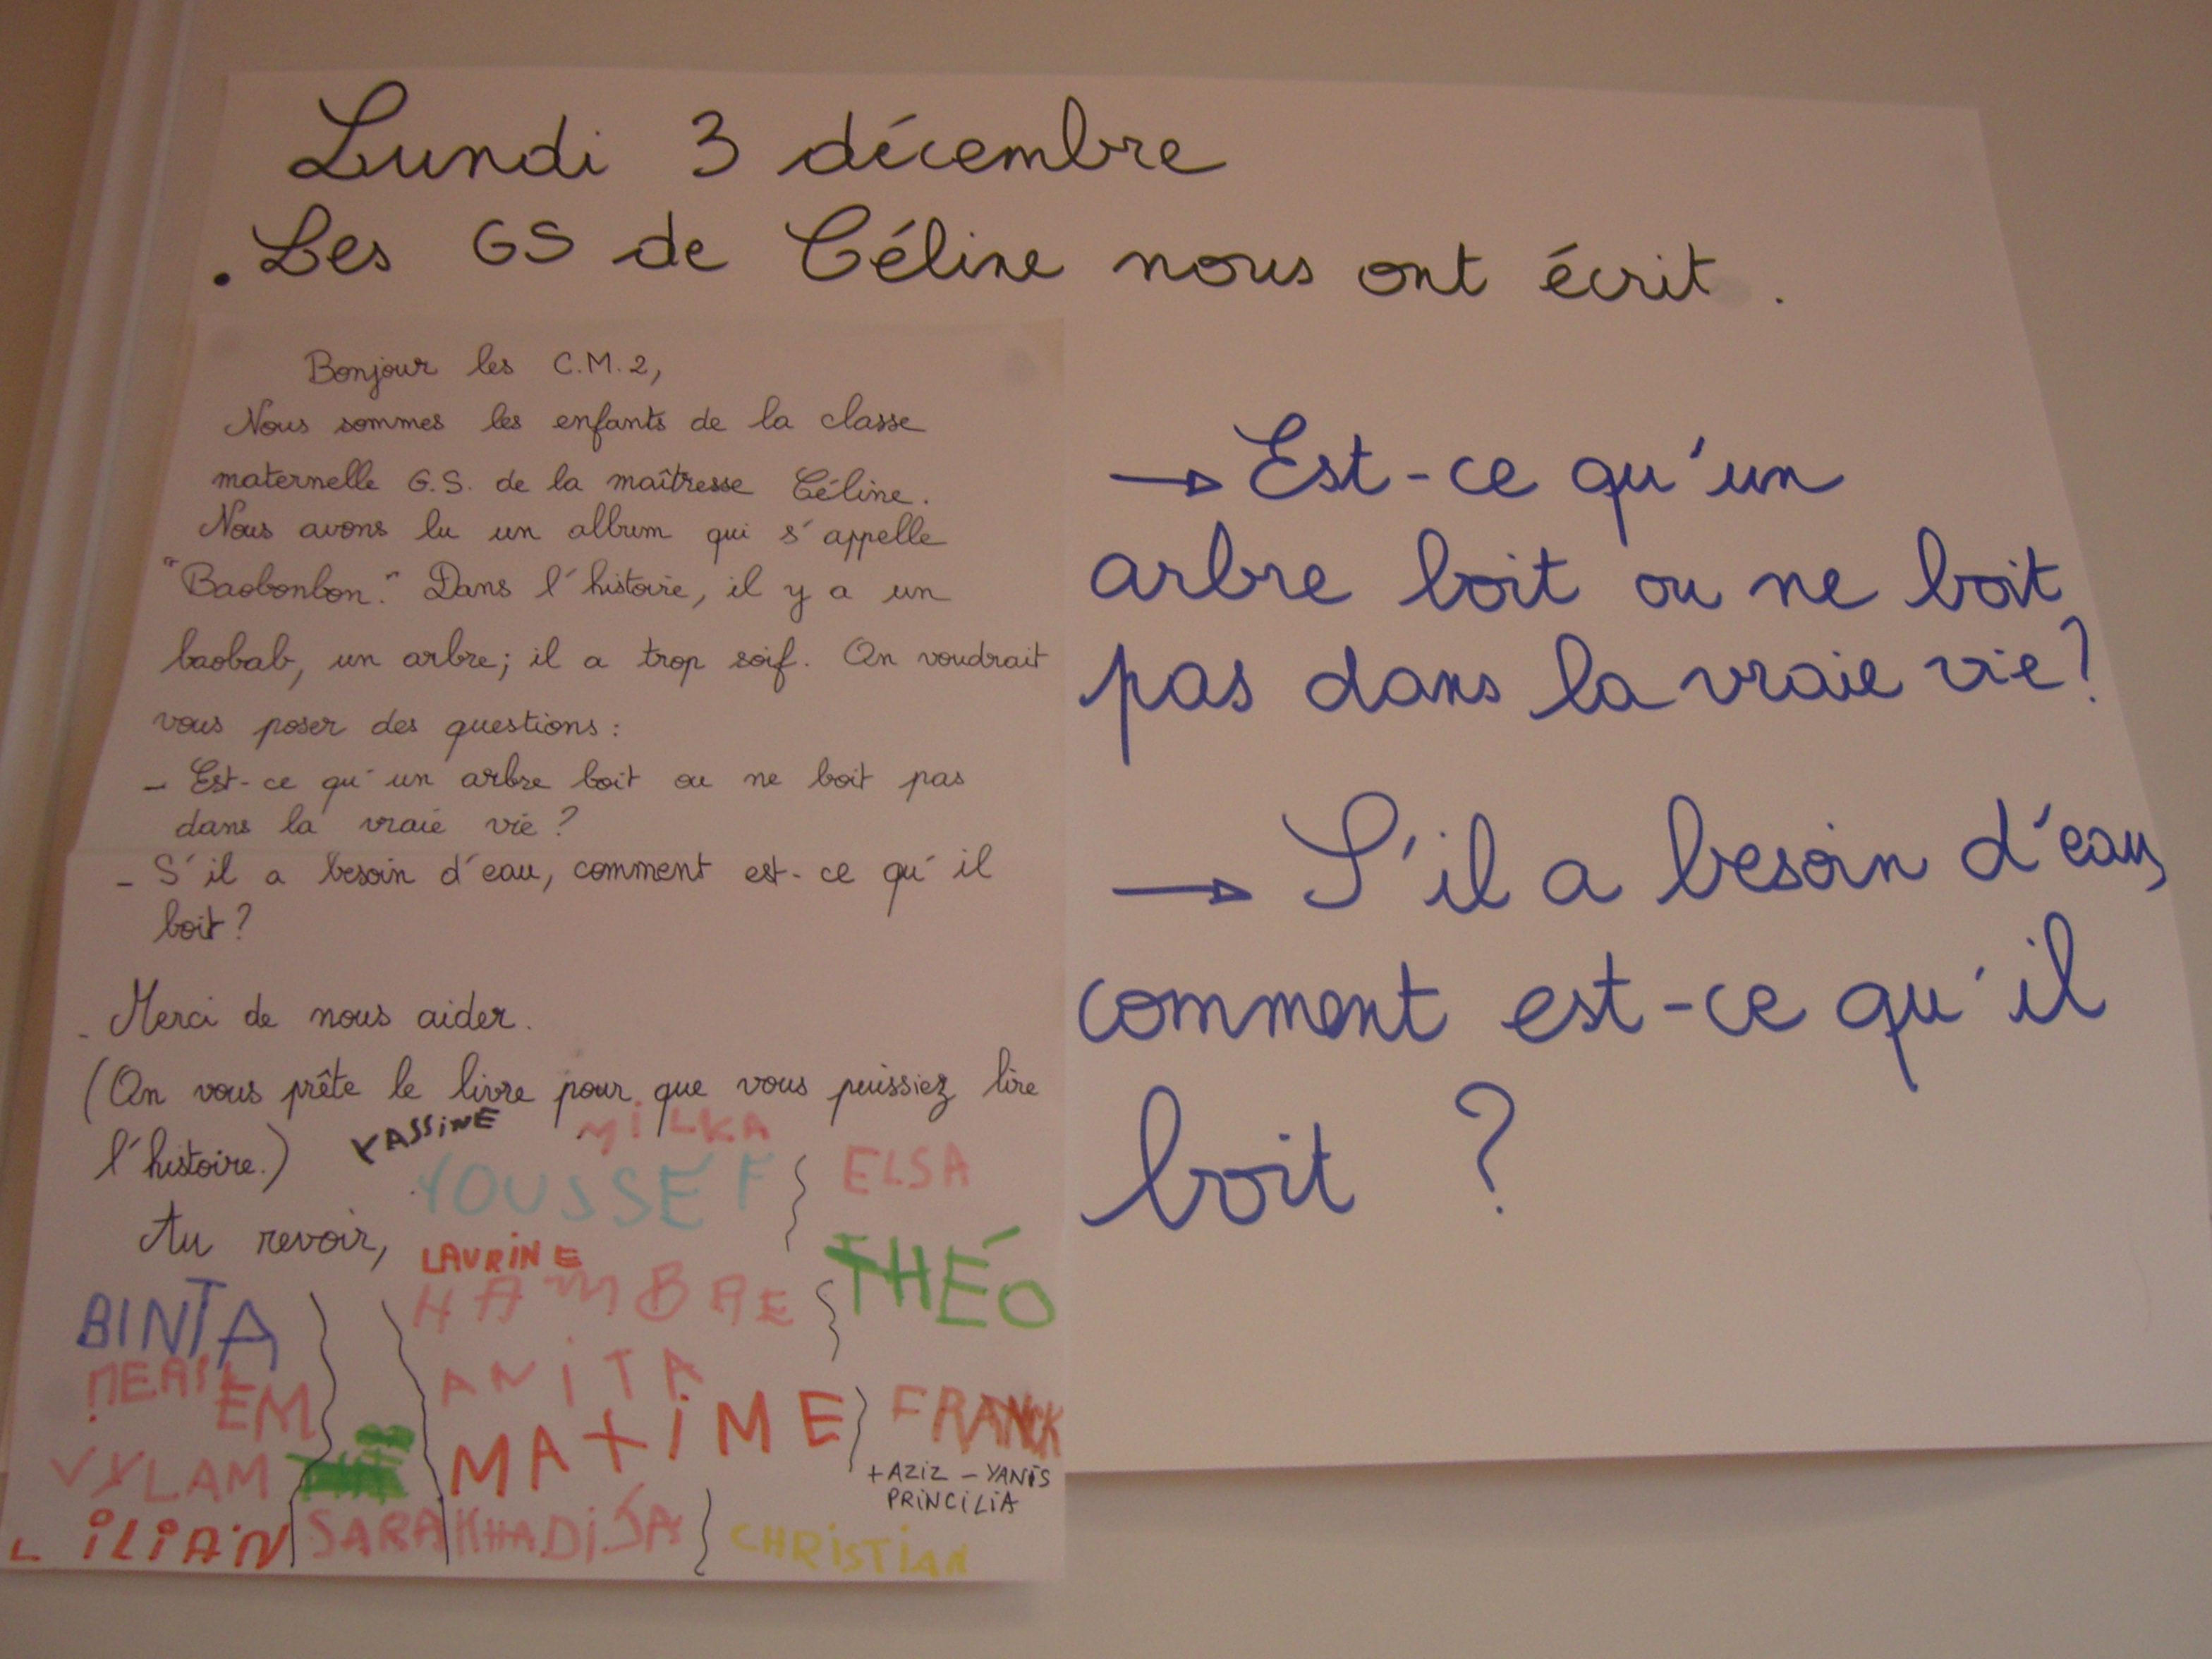 Lundi 3 décembre
. Les GS de Céline nous ont écrit .
Bonjour les C.M.2,
Nous sommes les enfants de la classe
maternelle G.S. de la maîtresse Céline.
Nous avons lu un album qui s'appelle
"Baobonbon". Dans l'histoire, il y a un
baobab, un arbre; il a trop soif. On voudrait
vous poser des questions :
- Est-ce qu'un arbre boit ou ne boit pas
dans la vraie vie ?
- S'il a besoin d'eau, comment est-ce qu'il
boit ?
- Merci de nous aider.
(On vous prête le livre pour que vous puissiez lire
l'histoire.)
Au revoir,
YASSINE
MILKA
YOUSSEF
ELSA
LAURINE
THÉO
HAMBRE
BINTA
ANITA
MAXIME
FRANCK
+ AZIZ - YANIS
PRINCILIA
VYLAM
LILIAN
SARA
KHADIJA
CHRISTIAN
→ Est-ce qu'un
arbre boit ou ne boit
pas dans la vraie vie ?
→ S'il a besoin d'eau,
comment est-ce qu'il
boit ?